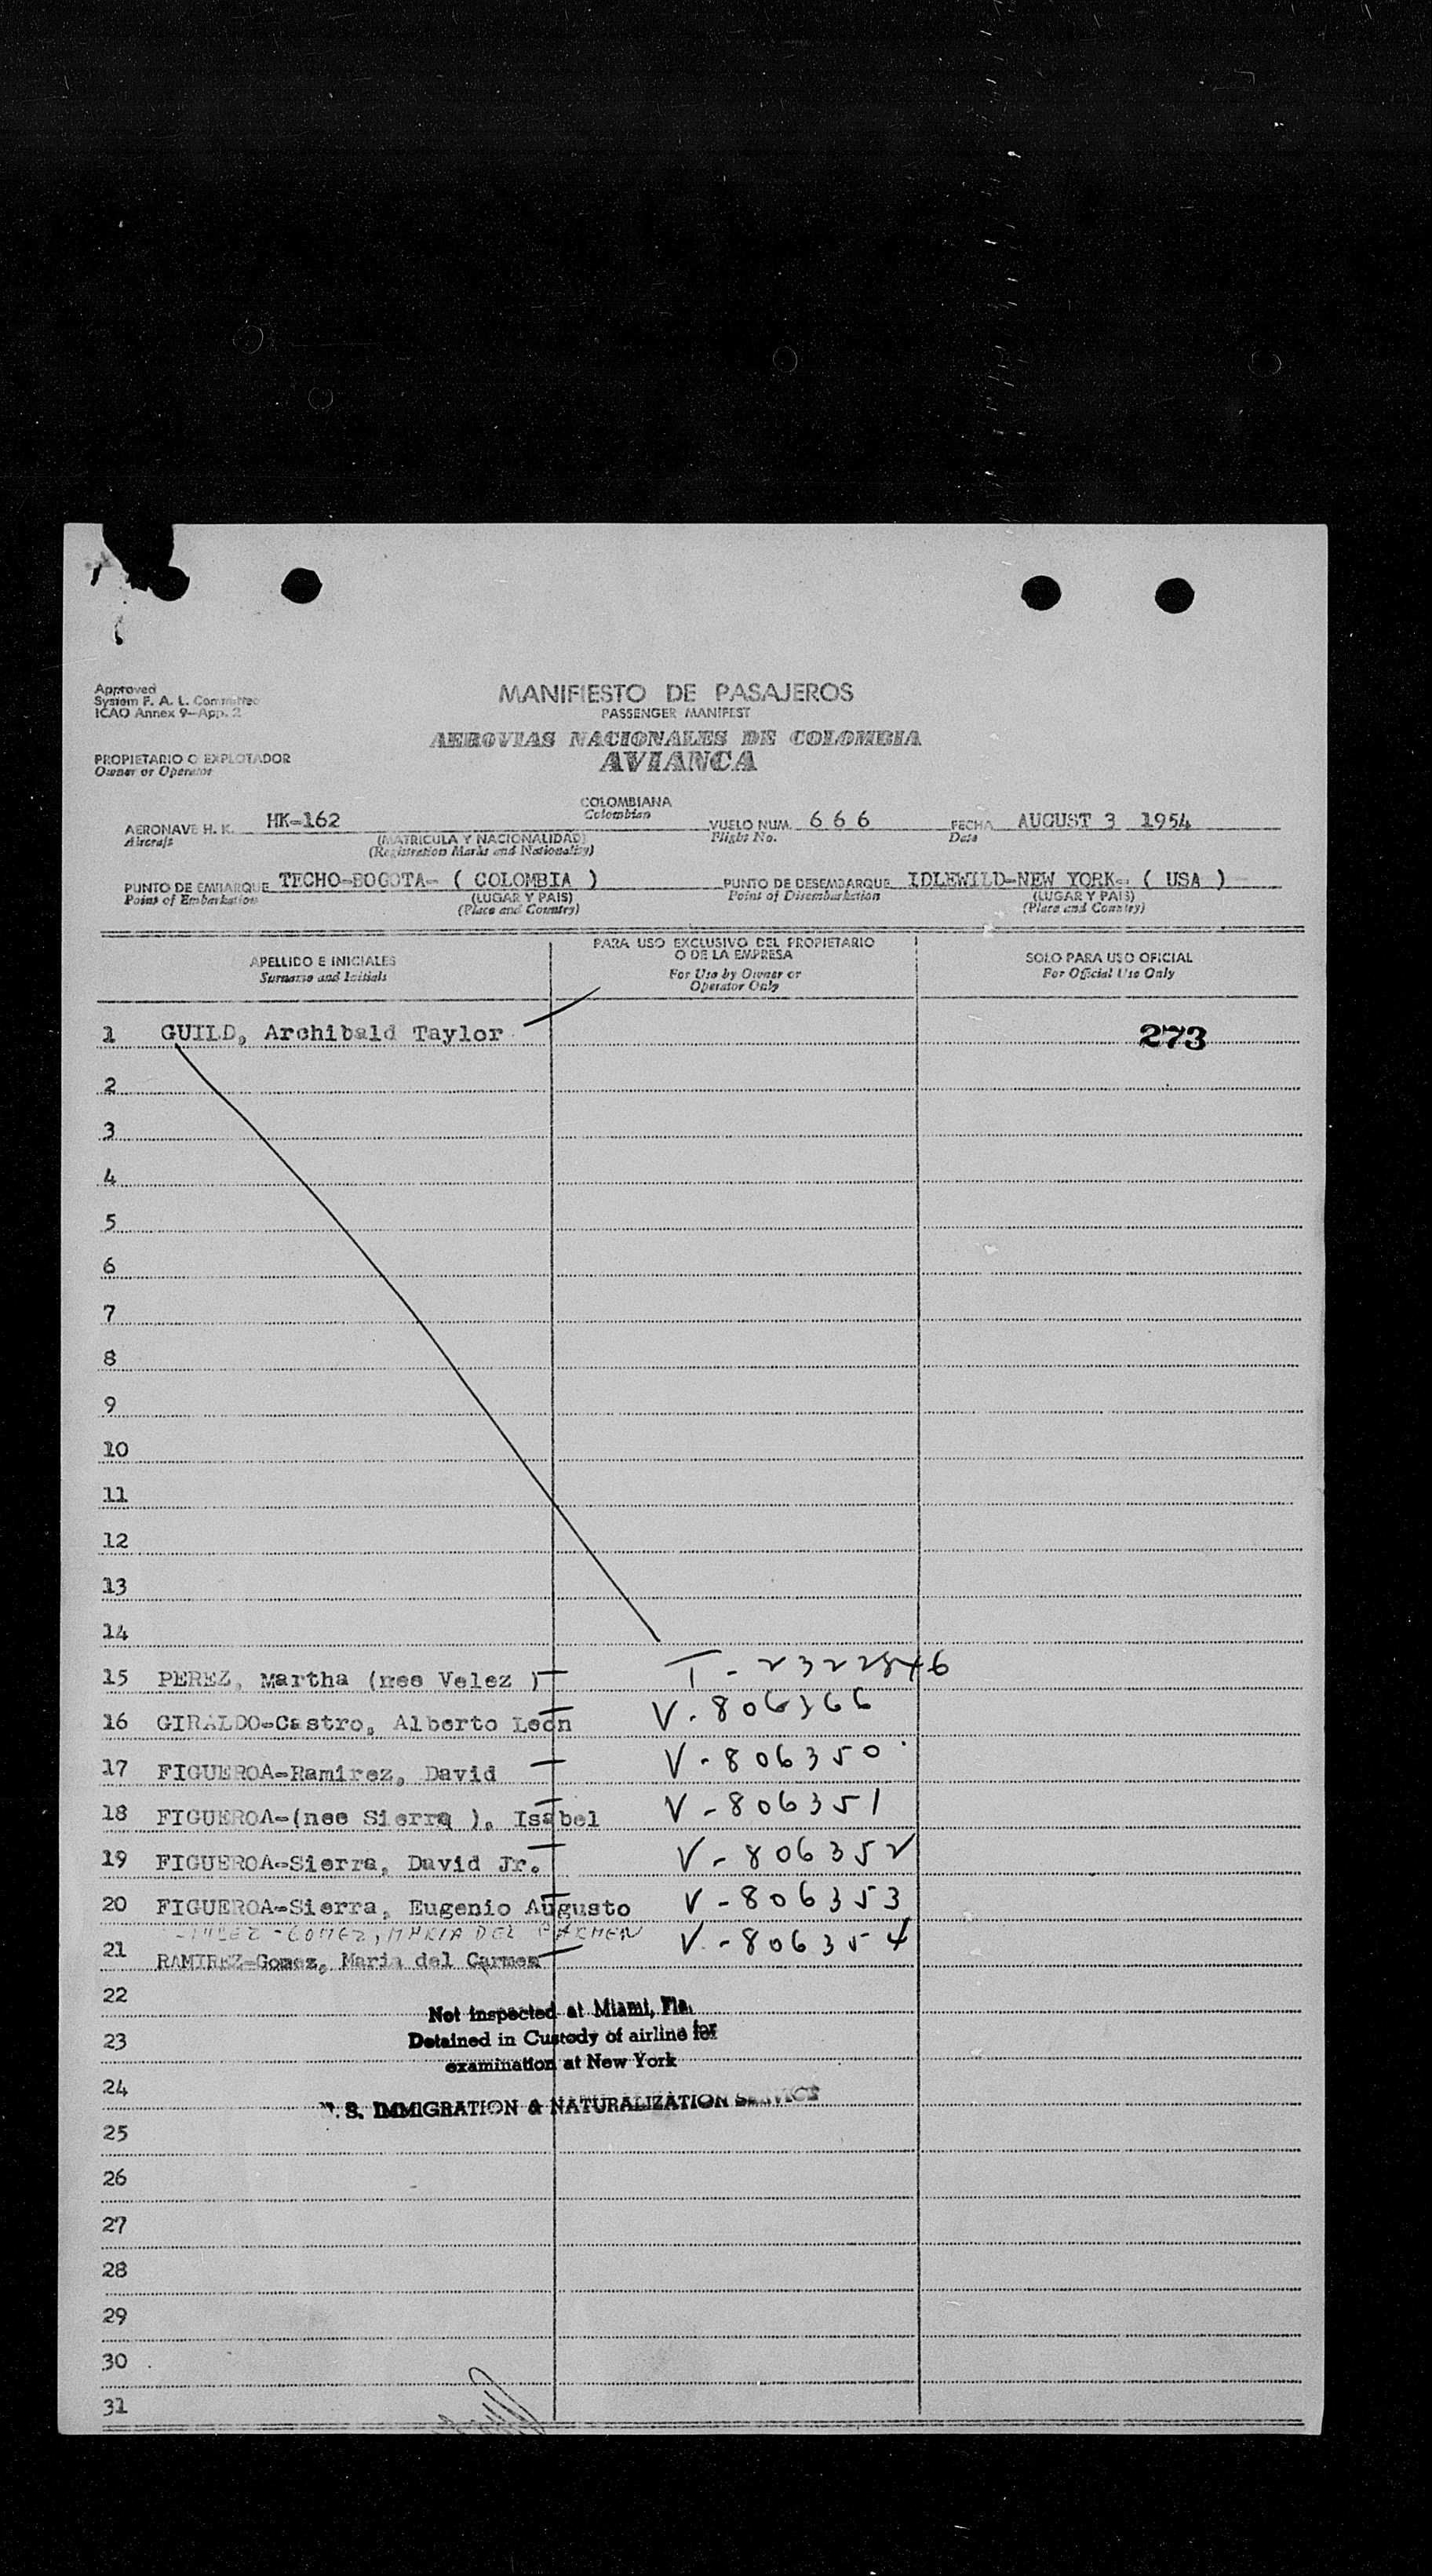 Approved
System F. A. L. Committee
ICAO Annex 9-App. 2
MANIFIESTO DE PASAJEROS
PASSENGER MANIFEST
AEROVIAS NACIONALES DE COLOMBIA
AVIANCA
PROPIETARIO O EXPLOTADOR
Owner or Operator
COLOMBIANA
Colombian
AERONAVE H. K. HK-162
Aircraft
(MATRICULA Y NACIONALIDAD)
(Registration Marks and Nationality)
VUELO NUM. 6 6 6
Flight No.
FECHA AUGUST 3 1954
Date
PUNTO DE EMBARQUE TECHO-BOGOTA- ( COLOMBIA )
Point of Embarkation
(LUGAR Y PAIS)
(Place and Country)
PUNTO DE DESEMBARQUE IDLEWILD-NEW YORK- ( USA )
Point of Disembarkation
(LUGAR Y PAIS)
(Place and Country)
APELLIDO E INICIALES
Surname and Initials
PARA USO EXCLUSIVO DEL PROPIETARIO
O DE LA EMPRESA
For Use by Owner or
Operator Only
SOLO PARA USO OFICIAL
For Official Use Only
1 GUILD, Archibald Taylor 273
2
3
4
5
6
7
8
9
10
11
12
13
14
15 PEREZ, Martha (nee Velez ) T-2322846
16 GIRALDO-Castro, Alberto León V-806366
17 FIGUEROA-Ramirez, David V-806350
18 FIGUEROA-(nee Sierra ), Isabel V-806351
19 FIGUEROA-Sierra, David Jr. V-806352
20 FIGUEROA-Sierra, Eugenio Augusto V-806353
-GOMEZ, MARIA DEL CARMEN
21 RAMIREZ-Gomez, Maria del Carmen V-806354
22
Not inspected at Miami, Fla.
23 Detained in Custody of airline for
examination at New York
24
U. S. IMMIGRATION & NATURALIZATION SERVICE
25
26
27
28
29
30
31